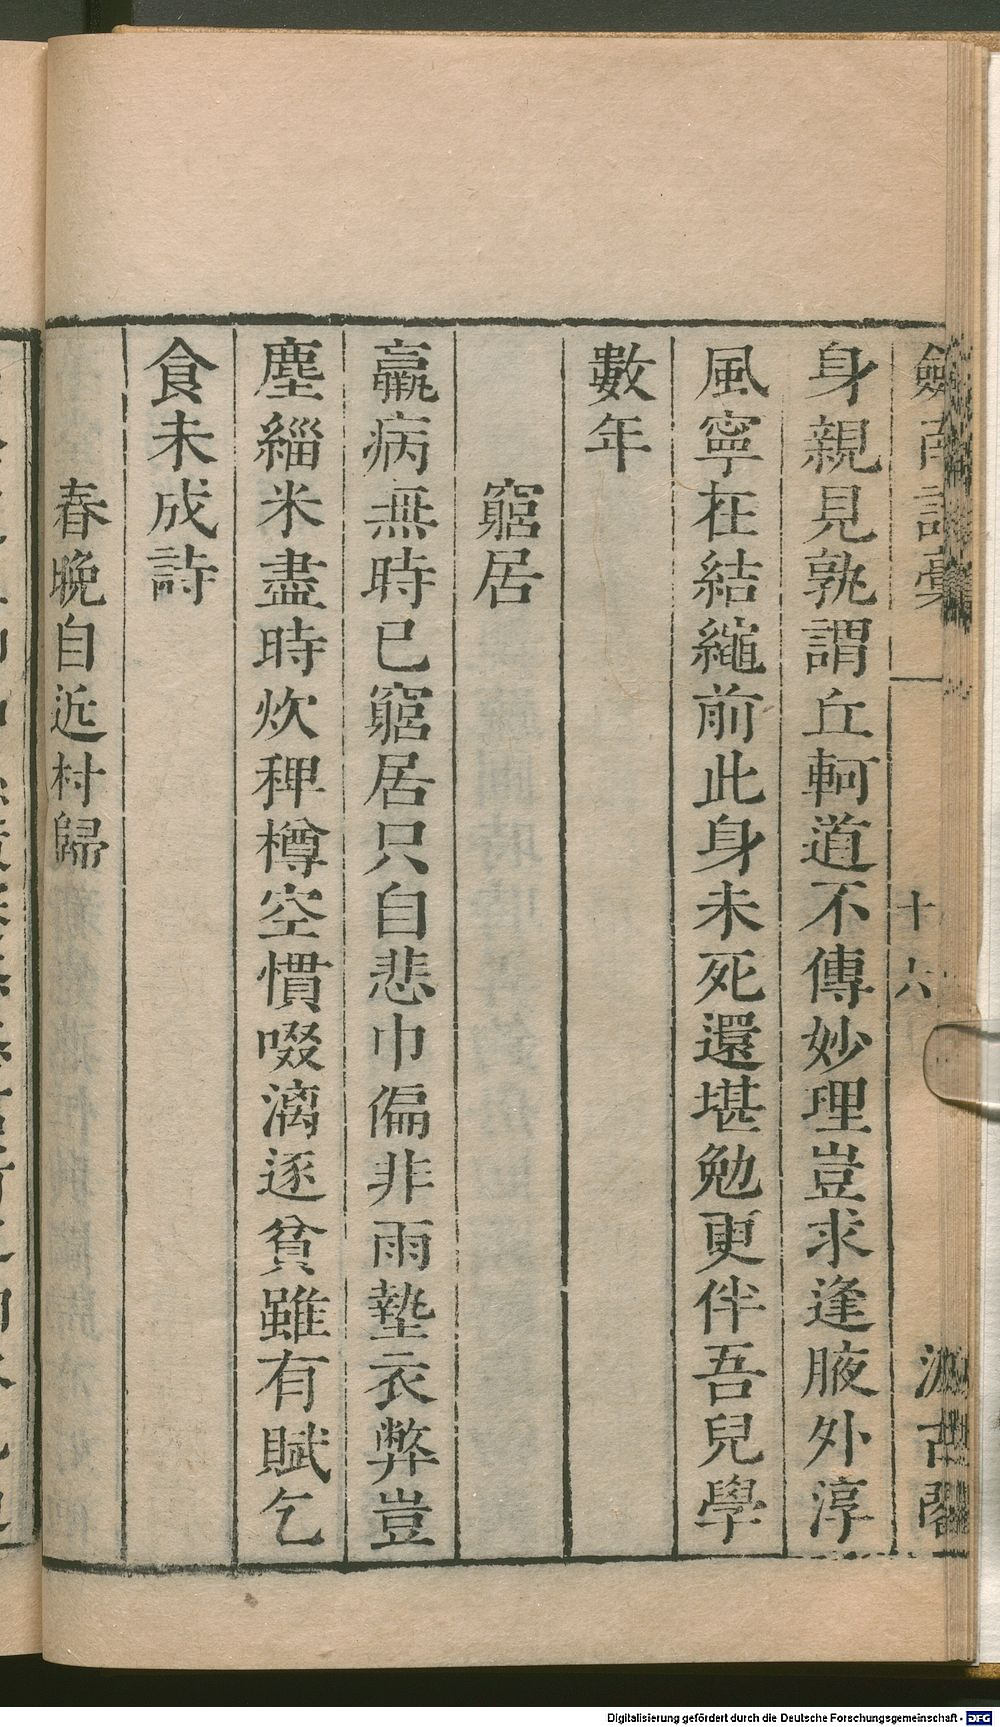 劒南詩稾 十六 汲古閣
身親見孰謂丘軻道不傳妙理豈求逢腋外淳
風寧在結繩前此身未死還堪勉更伴吾兒學
數年
窮居
羸病無時已窮居只自悲巾偏非雨墊衣弊豈
塵緇米盡時炊稗樽空慣啜漓逐貧雖有賦乞
食未成詩
春晚自近村歸
Digitalisierung gefördert durch die Deutsche Forschungsgemeinschaft - DFG